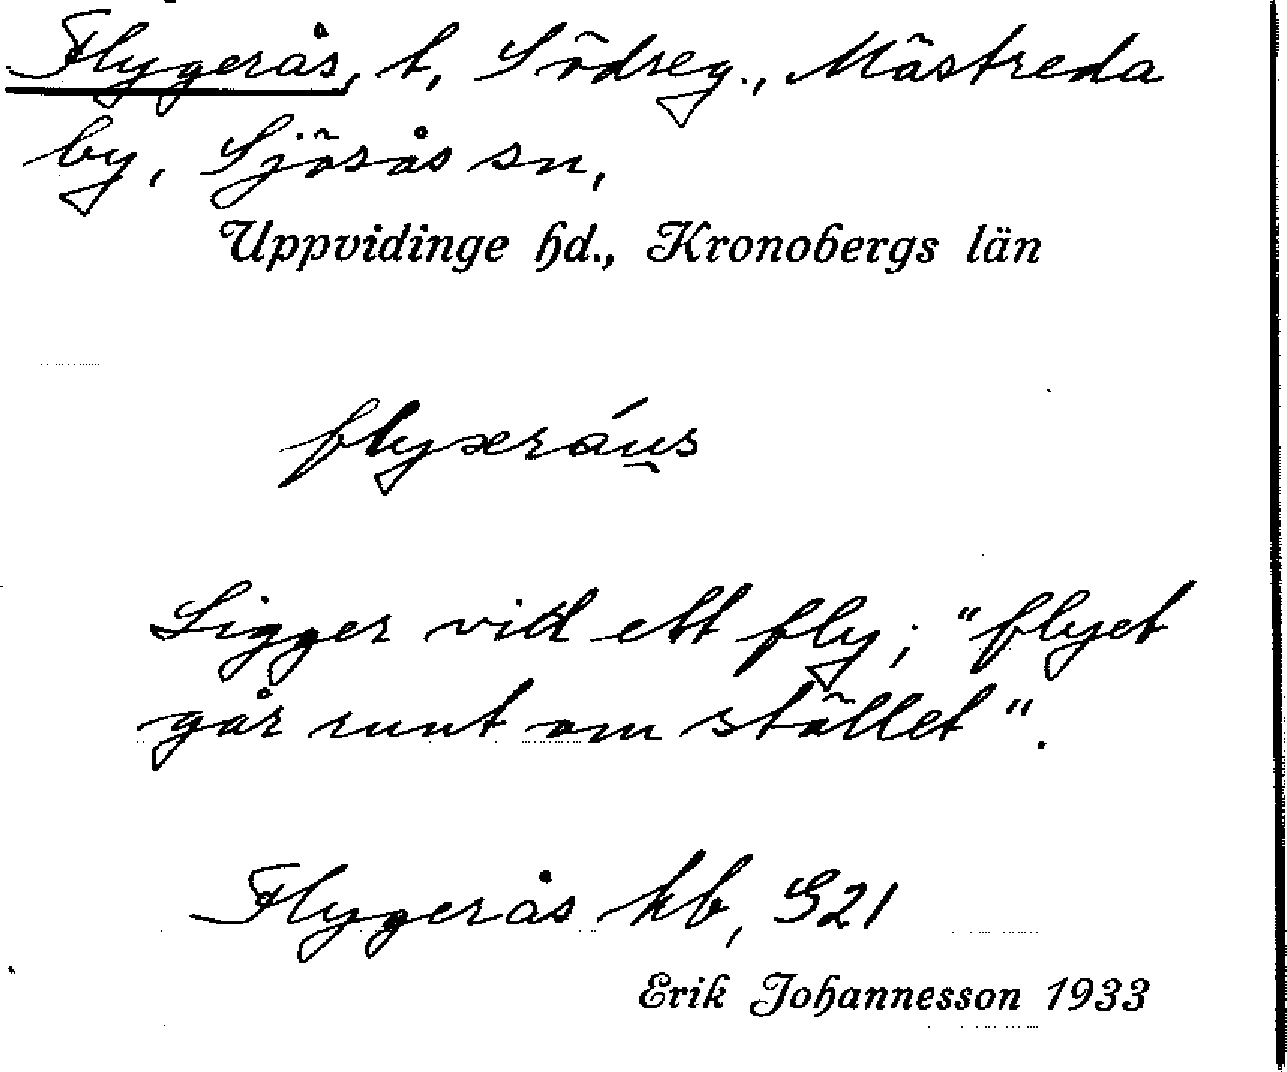 Flygerås, t, Södreg., Mästreda
by, Sjösås sn,
Uppvidinge hd., Kronobergs län
flyxeráus
Ligger vid ett fly; "flyet
går runt om stället".
Flygerås kb, S21
Erik Johannesson 1933